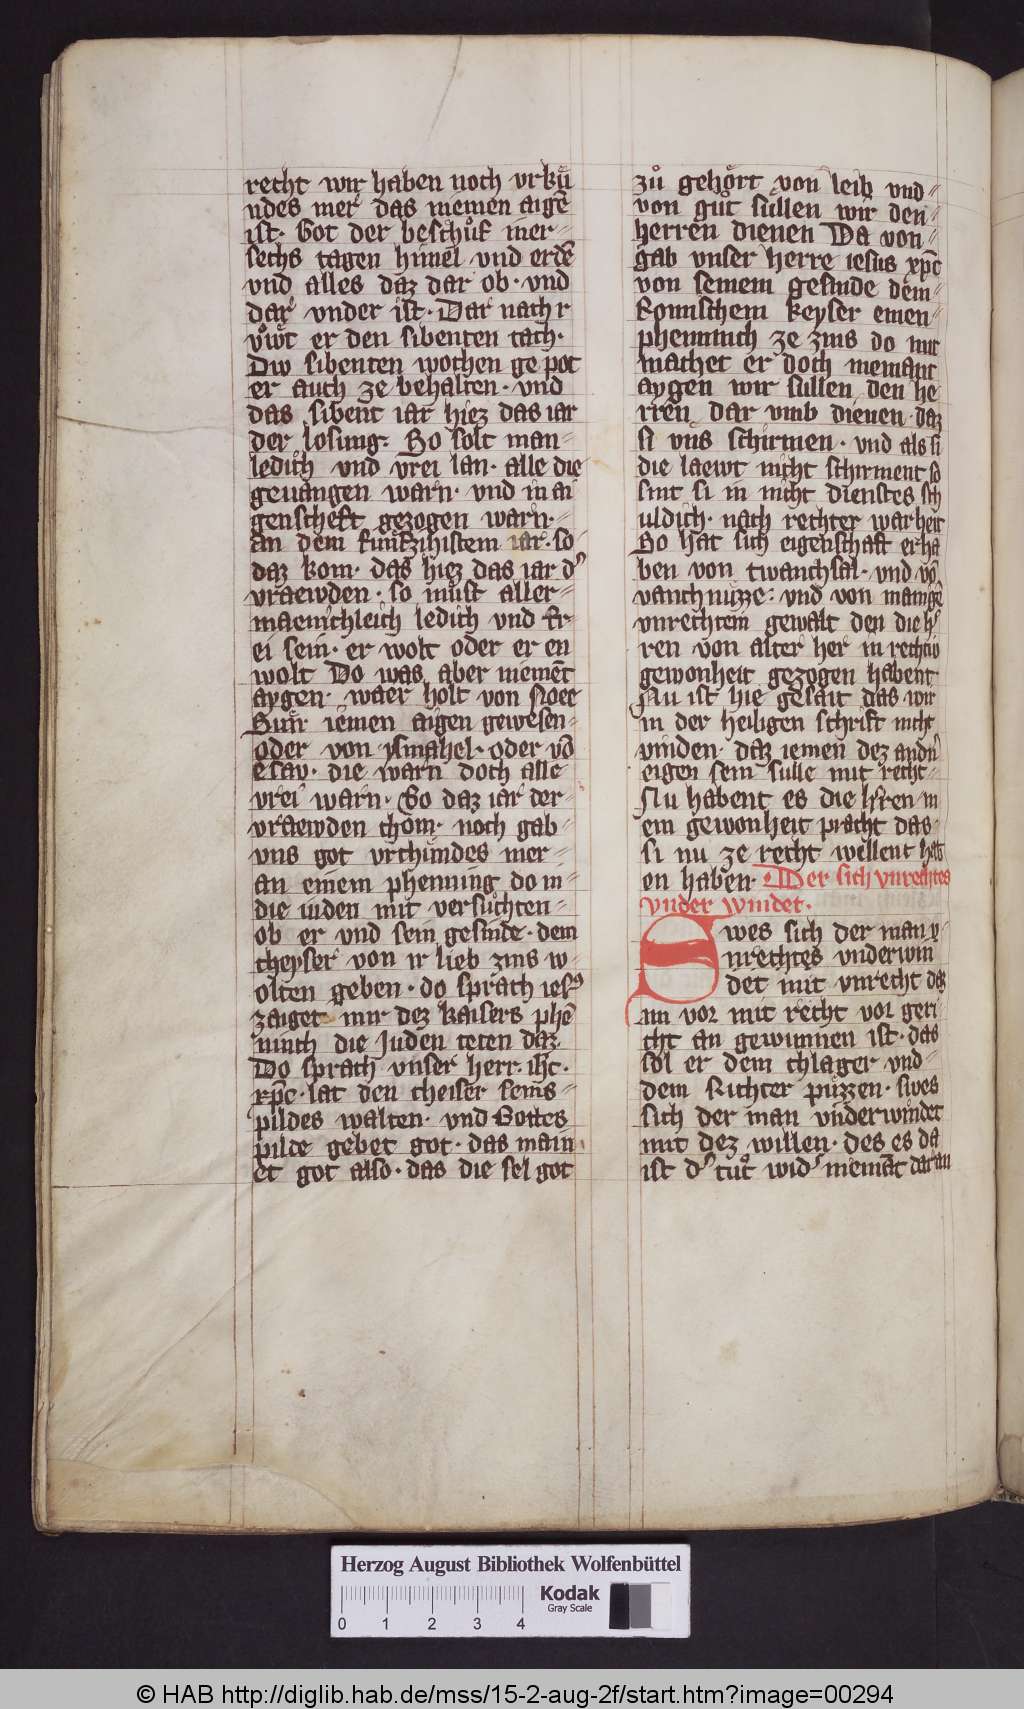 recht wir haben noch vrkuͤ
ndes mer das niemen aigē
ist· Got der beschuͦf iner⸗
sechs tagen himel vnd erdē
vnd alles daz dar ob· vnd
dar vnder ist· Dar nach r
vͦwt er den sibenten tach·
Div sibenten wochen ge pot
er auch ze behalten· vnd
das sibent iar hiez das iar
der losung· So solt man⸗
ledich vnd vrei lan· alle die
geuangen warn· vnd in ai
genscheft gezogen warn·
an dem funfzihistem iar· so
daz kom· das hiez das iar dˀ
vraewden· so muͤst aller⸗
maenichleich ledich vnd fr⸗
ei sein· er wolt oder er en
wolt Do was aber niemēt
aygen· waer holt von Noee
Sun iemen aigen gewesen⸗
oder von ysmahel· oder vō
esav· die warn doch alle
vrei warn· So daz iar der⸗
vraewden chom· noch gab⸗
vns got vrchundes mer⸗
an einem phenning do in⸗
die iuden mit versuͦchten⸗
ob er vnd sein gesinde· dem
cheyser von ir lieb zins w⸗
olten geben· do sprach iesˀ
zaiget mir dez kaisers phē
ninch die Juden teten daz
Do sprach vnser herr· ihc·
xp̄c· lat den cheiser seins⸗
pildes walten· vnd Gottes
pilde gebet got· das main
et got also· das die sel got
zuͦ gehoͤrt von leib vnd⸗
von guͦt suͤllen wir den⸗
herren dienen Da von⸗
gab vnser herre iesus xpc̄
von seinem gesinde dem⸗
Romischem keyser einen⸗
phenninch ze zins do mit
machet er doch niemant
aygen wir sullen den he
rren dar vmb dienen· daz
si vns schirmen· vnd als si
die laewt nicht schirment so
sint si in nicht dienstes sch
uldich· nach rechter warheit
So hat sich eigenschaft erha
ben von twanchsal· vnd vō
vanchnuzze· vnd von manigē
vnrechtem gewalt den die hˀ
ren von alter her in rechtiv
gewonheit gezogen habent
Nu ist hie gesait das wir
in der heiligen schrift nicht
vinden· daz iemen dez andˀn
eigen sein sulle mit recht⸗
Nu habent es die hˀren in
ein gewonheit pracht das⸗
si nu ze recht wellent hab
en haben· Der sich vnrechtes
vnder windet·
Swes sich der man v
nrechtes vnderwin
det mit vnrecht daz
im vor mit recht vor geri
cht an gewunnen ist· das
sol er dem chlager vnd⸗
dem Richter puͤzzen· swes
sich der man vnderwindet
mit dez willen· des es da
ist dˀ tuͦt widˀ niemāt dar an
Herzog August Bibliothek Wolfenbüttel
0 1 2 3 4
Kodak
Gray Scale
© HAB http://diglib.hab.de/mss/15-2-aug-2f/start.htm?image=00294